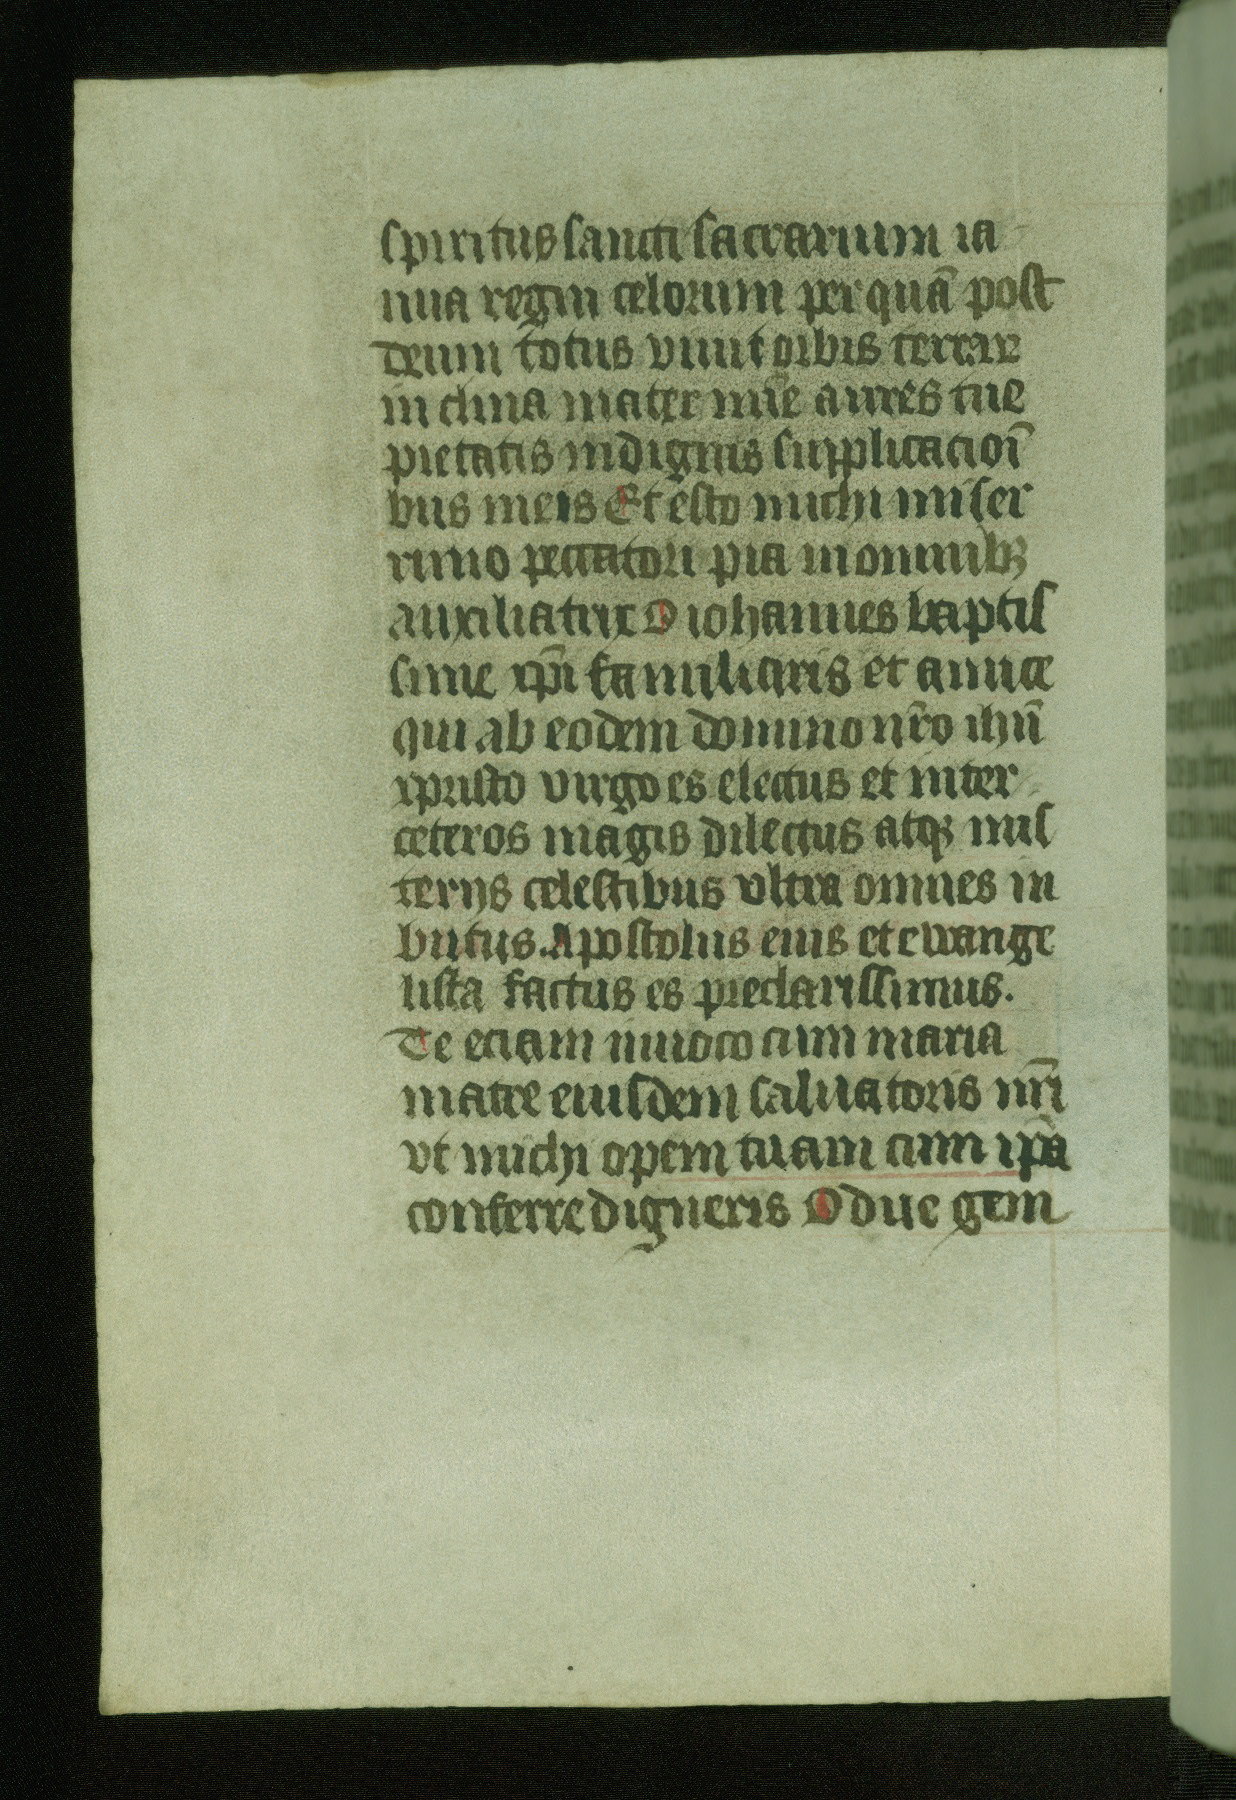 spiritus sancti sacrarium ia
nua regni celorum per quā post
deum totus viuit orbis terrar
inclina mater mīe aures tue
pietatis indignis supplicacioī
bus meis Et esto michi miser
rimo peccatori pia in omnibꝫ
auxiliatrix O iohannes baptis
sime xp̄i familiaris et amice
qui ab eodem domino nr̄o ihū
xpristo virgo es electus et inter
ceteros magis dilectus atqꝫ mis
terijs celestibus ultra omnes in
butus. Apostolus eius et ewange
lista factus es preclarissimus.
Te eciam inuoco cum maria
matre eiusdem saluatoris nr̄i
vt michi opem tuam cum ip̄a
conferre digneris O due gem